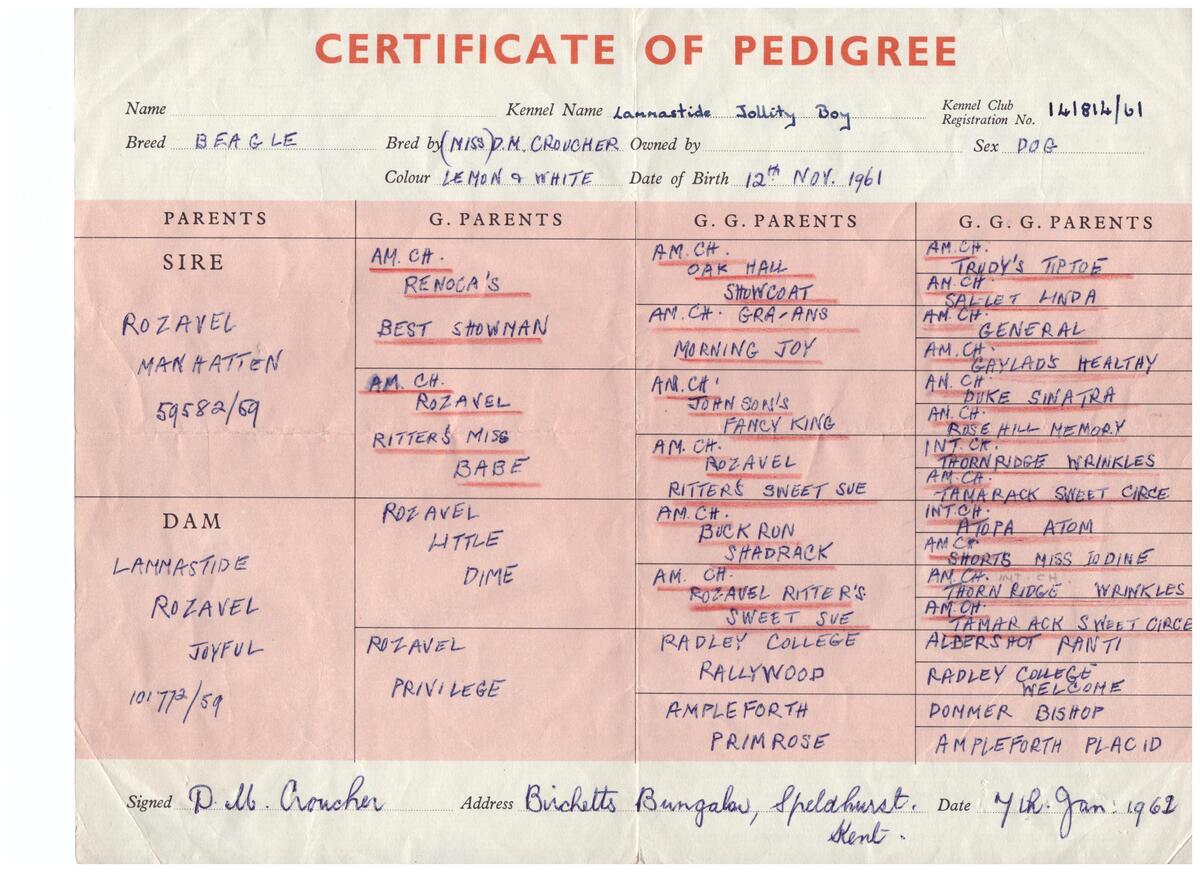 CERTIFICATE OF PEDIGREE
Name Kennel Name Lammastide Jollity Boy Kennel Club Registration No. 141814/61
Breed BEAGLE Bred by (MISS) D.M. CROUCHER Owned by Sex DOG
Colour LEMON & WHITE Date of Birth 12th NOV. 1961
PARENTS
SIRE
ROZAVEL
MANHATTEN
59582/59
DAM
LAMMASTIDE
ROZAVEL
JOYFUL
101772/59
G. PARENTS
AM. CH.
RENOCA'S
BEST SHOWMAN
AM. CH.
ROZAVEL
RITTER'S MISS
BABE
ROZAVEL
LITTLE
DIME
ROZAVEL
PRIVILEGE
G. G. PARENTS
AM. CH.
OAK HALL
SHOWCOAT
AM. CH. GRA-ANS
MORNING JOY
AM. CH.
JOHNSON'S
FANCY KING
AM. CH.
ROZAVEL
RITTER'S SWEET SUE
AM. CH.
BUCK RUN
SHADRACK
AM. CH.
ROZAVEL RITTER'S
SWEET SUE
RADLEY COLLEGE
RALLYWOOD
AMPLEFORTH
PRIMROSE
G. G. G. PARENTS
AM. CH.
TRUDY'S TIPTOE
AM. CH.
SAL-LET LINDA
AM. CH.
GENERAL
AM. CH.
GAYLAD'S HEALTHY
AM. CH.
DUKE SINATRA
AM. CH.
ROSE HILL MEMORY
INT. CH.
THORNRIDGE WRINKLES
AM. CH.
TAMARACK SWEET CIRCE
INT. CH.
ATOPA ATOM
AM. CH.
SHORTS MISS IODINE
AM. CH. INT. CH.
THORN RIDGE WRINKLES
AM. CH.
TAMARACK SWEET CIRCE
ALDERSHOT RANTI
RADLEY COLLEGE
WELCOME
DOMMER BISHOP
AMPLEFORTH PLACID
Signed D. M. Croucher Address Birchetts Bungalow, Speldhurst. Date 7th. Jan: 1962
Kent.